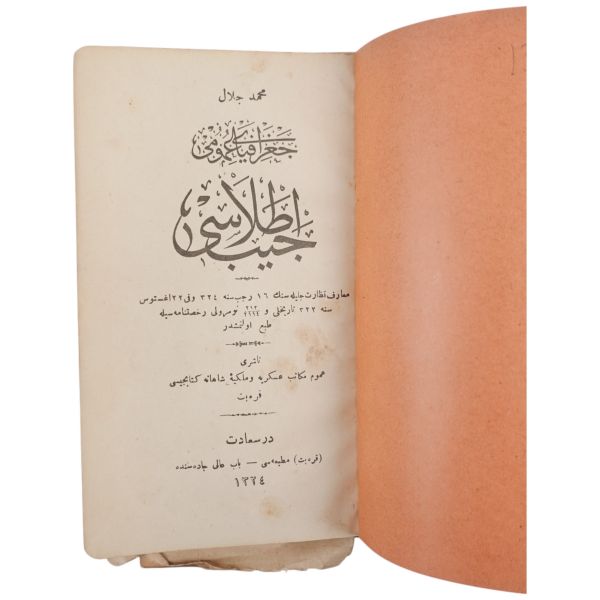 محمد جلال
جغرافیای عمومی
جیب اطلاسی
معارف نظارت جلیله‌سنك ١٦ رجب سنه ٣٢٤ و فی ٢٢ اغستوس
سنه ٣٢٢ تاریخلی و نومرولی رخصتنامه سیله
طبع اولنمشدر
ناشری
عموم مکاتب عسکریه و ملکیهٔ شاهانه کتابجیسی
قره‌بت
درسعادت
(قره‌بت) مطبعه‌سی — باب عالی جاده‌سنده
١٣٢٤